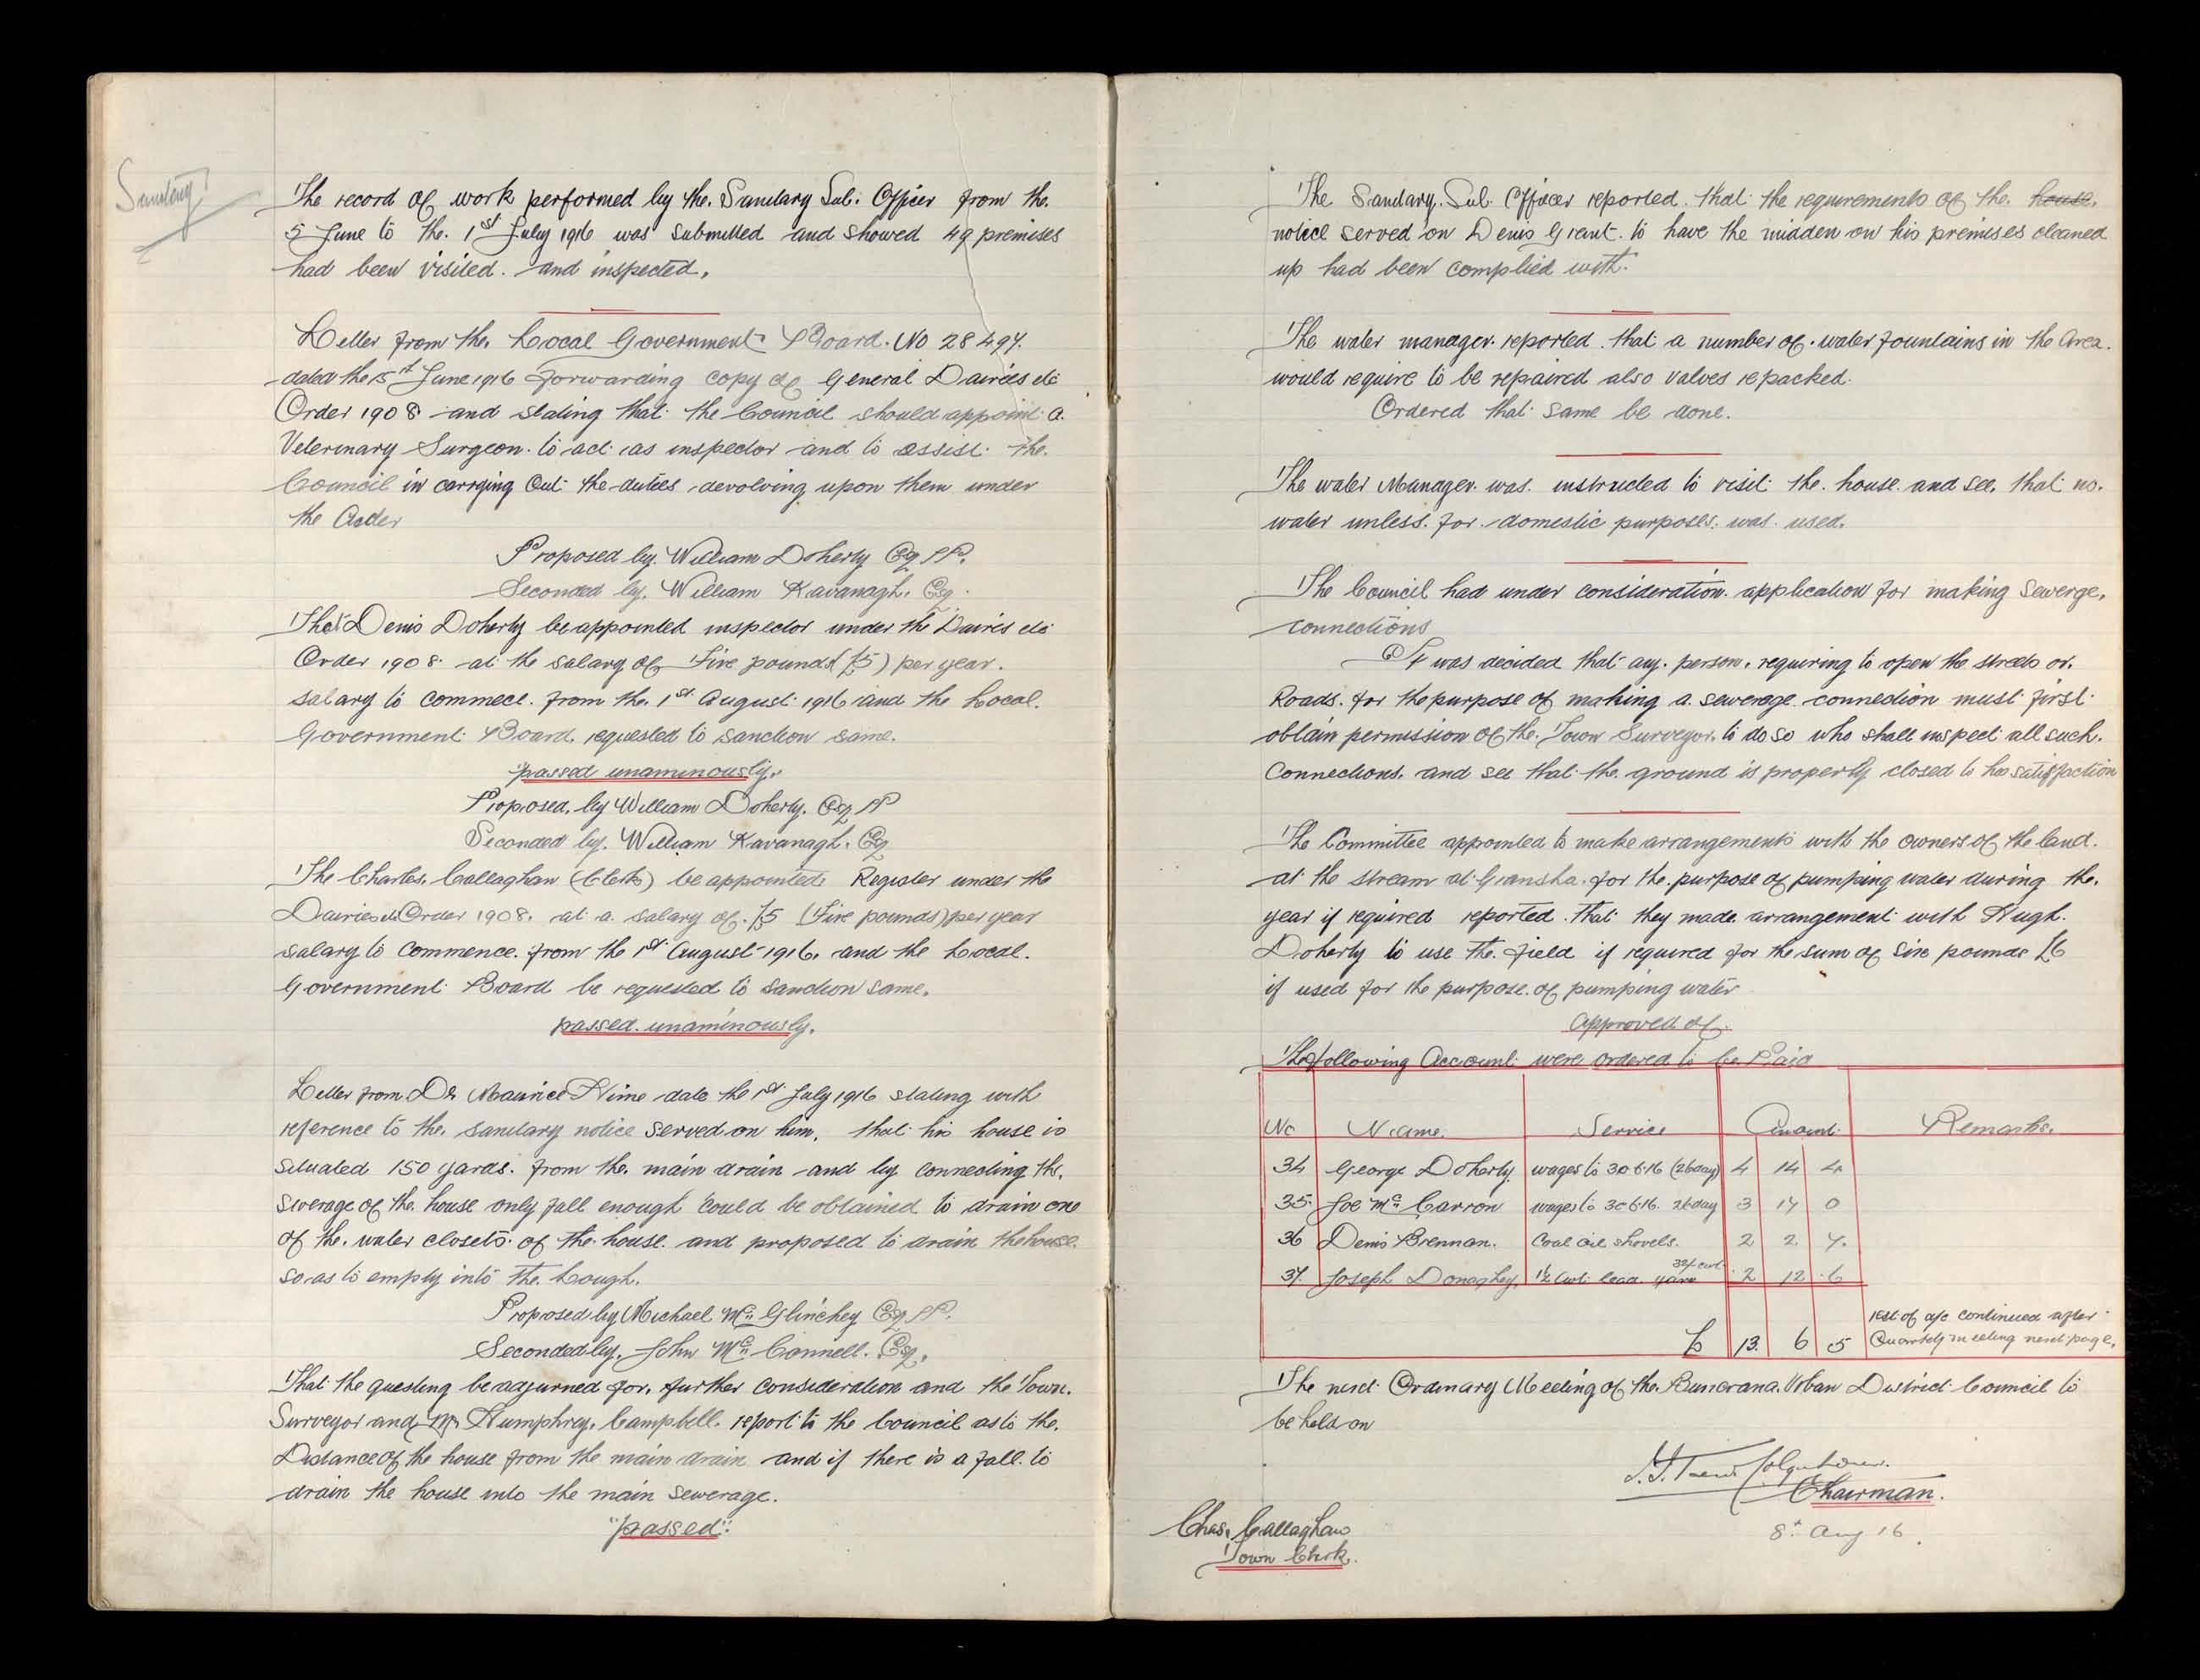 Sanitary
The record of work performed by the Sanitary Sub. Officer from the
5 June to the 1st July 1916 was submitted and showed 49 premises
had been visited and inspected.
Letter from the Local Government Board. No 28497.
dated the 15th June 1916 forwarding copy of General Dairies etc
Order 1908 and stating that the Council should appoint a
Veterinary Surgeon to act as inspector and to assist the
Council in carrying out the duties devolving upon them under
the Order
Proposed by William Doherty Esq JP.
Seconded by William Kavanagh. Esq.
That Denis Doherty be appointed inspector under the Dairies etc
Order 1908 at the salary of Five pounds (£5) per year.
salary to commece from the 1st August 1916 and the Local
Government Board requested to sanction same.
"passed unaminously."
Proposed by William Doherty. Esq JP
Seconded by William Kavanagh. Esq
The Charles Callaghan (Clerk) be appointed Register under the
Dairies etc Order 1908. at a salary of £5 (Five pounds) per year
salary to commence from the 1st August 1916. and the Local
Government Board be requested to sanction same.
passed unaminously.
Letter from Dr Maurice Hime date the 1st July 1916 stating with
reference to the sanitary notice served on him. that his house is
situated 150 yards from the main drain and by connecting the
sewerage of the house only fall enough could be obtained to drain one
of the water closets of the house and proposed to drain the house
so as to empty into the Lough.
Proposed by Michael McGlinchey Esq JP.
Seconded by John McConnell. Esq.
That the questing be adjurned for further consideration and the Town
Surveyor and Mr Humphrey Campbell report to the Council as to the
Distance of the house from the main drain and if there is a fall to
drain the house into the main sewerage.
"passed".
The Sanitary Sub. Officer reported that the requirements of the house
notice served on Denis Grant to have the midden on his premises cleaned
up had been complied with.
The water manager reported that a number of water fountains in the Area
would require to be repaired also valves repacked.
Ordered that same be done.
The water Manager was instructed to visit the house and see that no
water unless for domestic purposes was used.
The Council had under consideration application for making Sewerge
connections
It was decided that any person requiring to open the streets or
Roads for the purpose of making a sewerage connection must first
obtain permission of the Town Surveyor to do so who shall inspect all such
Connections. and see that the ground is properly closed to his satisfaction
The Committee appointed to make arrangements with the owners of the land
at the stream at Gransha for the purpose of pumping water during the
year if required reported that they made arrangement with Hugh
Doherty to use the field if required for the sum of Six pounds £6
if used for the purpose of pumping water
Approved of.
The following Account were ordered to be Paid
No Name. Service Amount Remarks.
34 George Doherty wages to 30 6 16 (26 day) 4 14 4
35 Joe McCarron wages to 30 6 16. 26 day 3 17 0
36 Denis Brennan. Coal oil shovels. 2 2 7.
37 Joseph Donaghey 1½ Cwt lead yarn 32/ cwt 2 12 6
£ 13 6 5 rest of a/c continued after
Quarterly meeting next page.
The next Ordinary Meeting of the Buncrana Urban District Council to
be held on
Chairman.
8th Aug 16
Chas. Callaghan
Town Clerk.